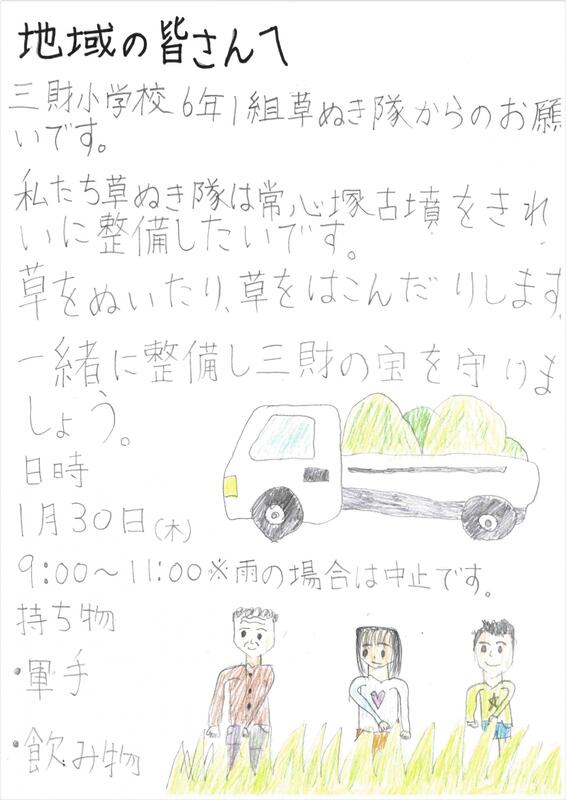 地域の皆さんへ
三財小学校6年1組草ぬき隊からのお願
いです。
私たち草ぬき隊は常心塚古墳をきれ
いに整備したいです。
草をぬいたり、草をはこんだりします。
一緒に整備し三財の宝を守りま
しょう。
日時
1月30日(木)
9:00～11:00※雨の場合は中止です。
持ち物
・軍手
・飲み物